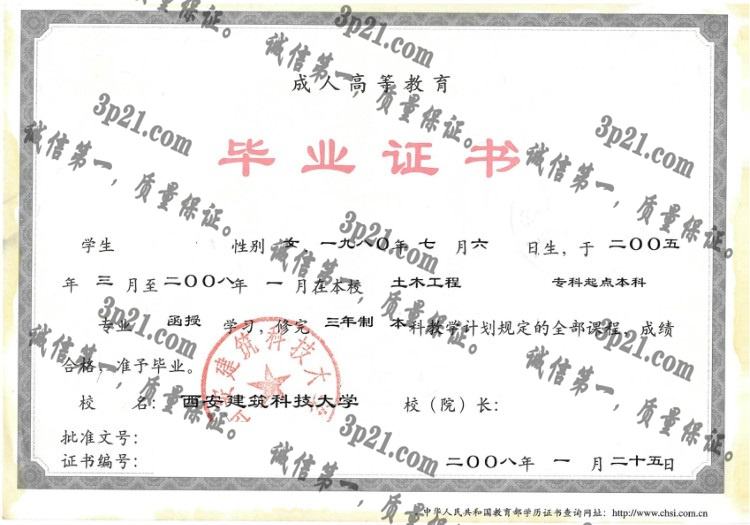 成人高等教育
毕业证书
学生 性别 女，一九八〇年 七 月 六 日生，于 二〇〇五
年 三 月至 二〇〇八 年 一 月在本校 土木工程 专科起点本科
专业 函授 学习，修完 三年制 本 科教学计划规定的全部课程，成绩
合格，准予毕业。
西安建筑科技大学
校 名：西安建筑科技大学 校（院）长：
批准文号：
证书编号： 二〇〇八年 一 月 二十五日
中华人民共和国教育部学历证书查询网址：http://www.chsi.com.cn
3p21.com
诚信第一，质量保证。
3p21.com
诚信第一，质量保证。
3p21.com
诚信第一，质量保证。
3p21.com
诚信第一，质量保证。
3p21.com
诚信第一，质量保证。
3p21.com
诚信第一，质量保证。
3p21.com
诚信第一，质量保证。